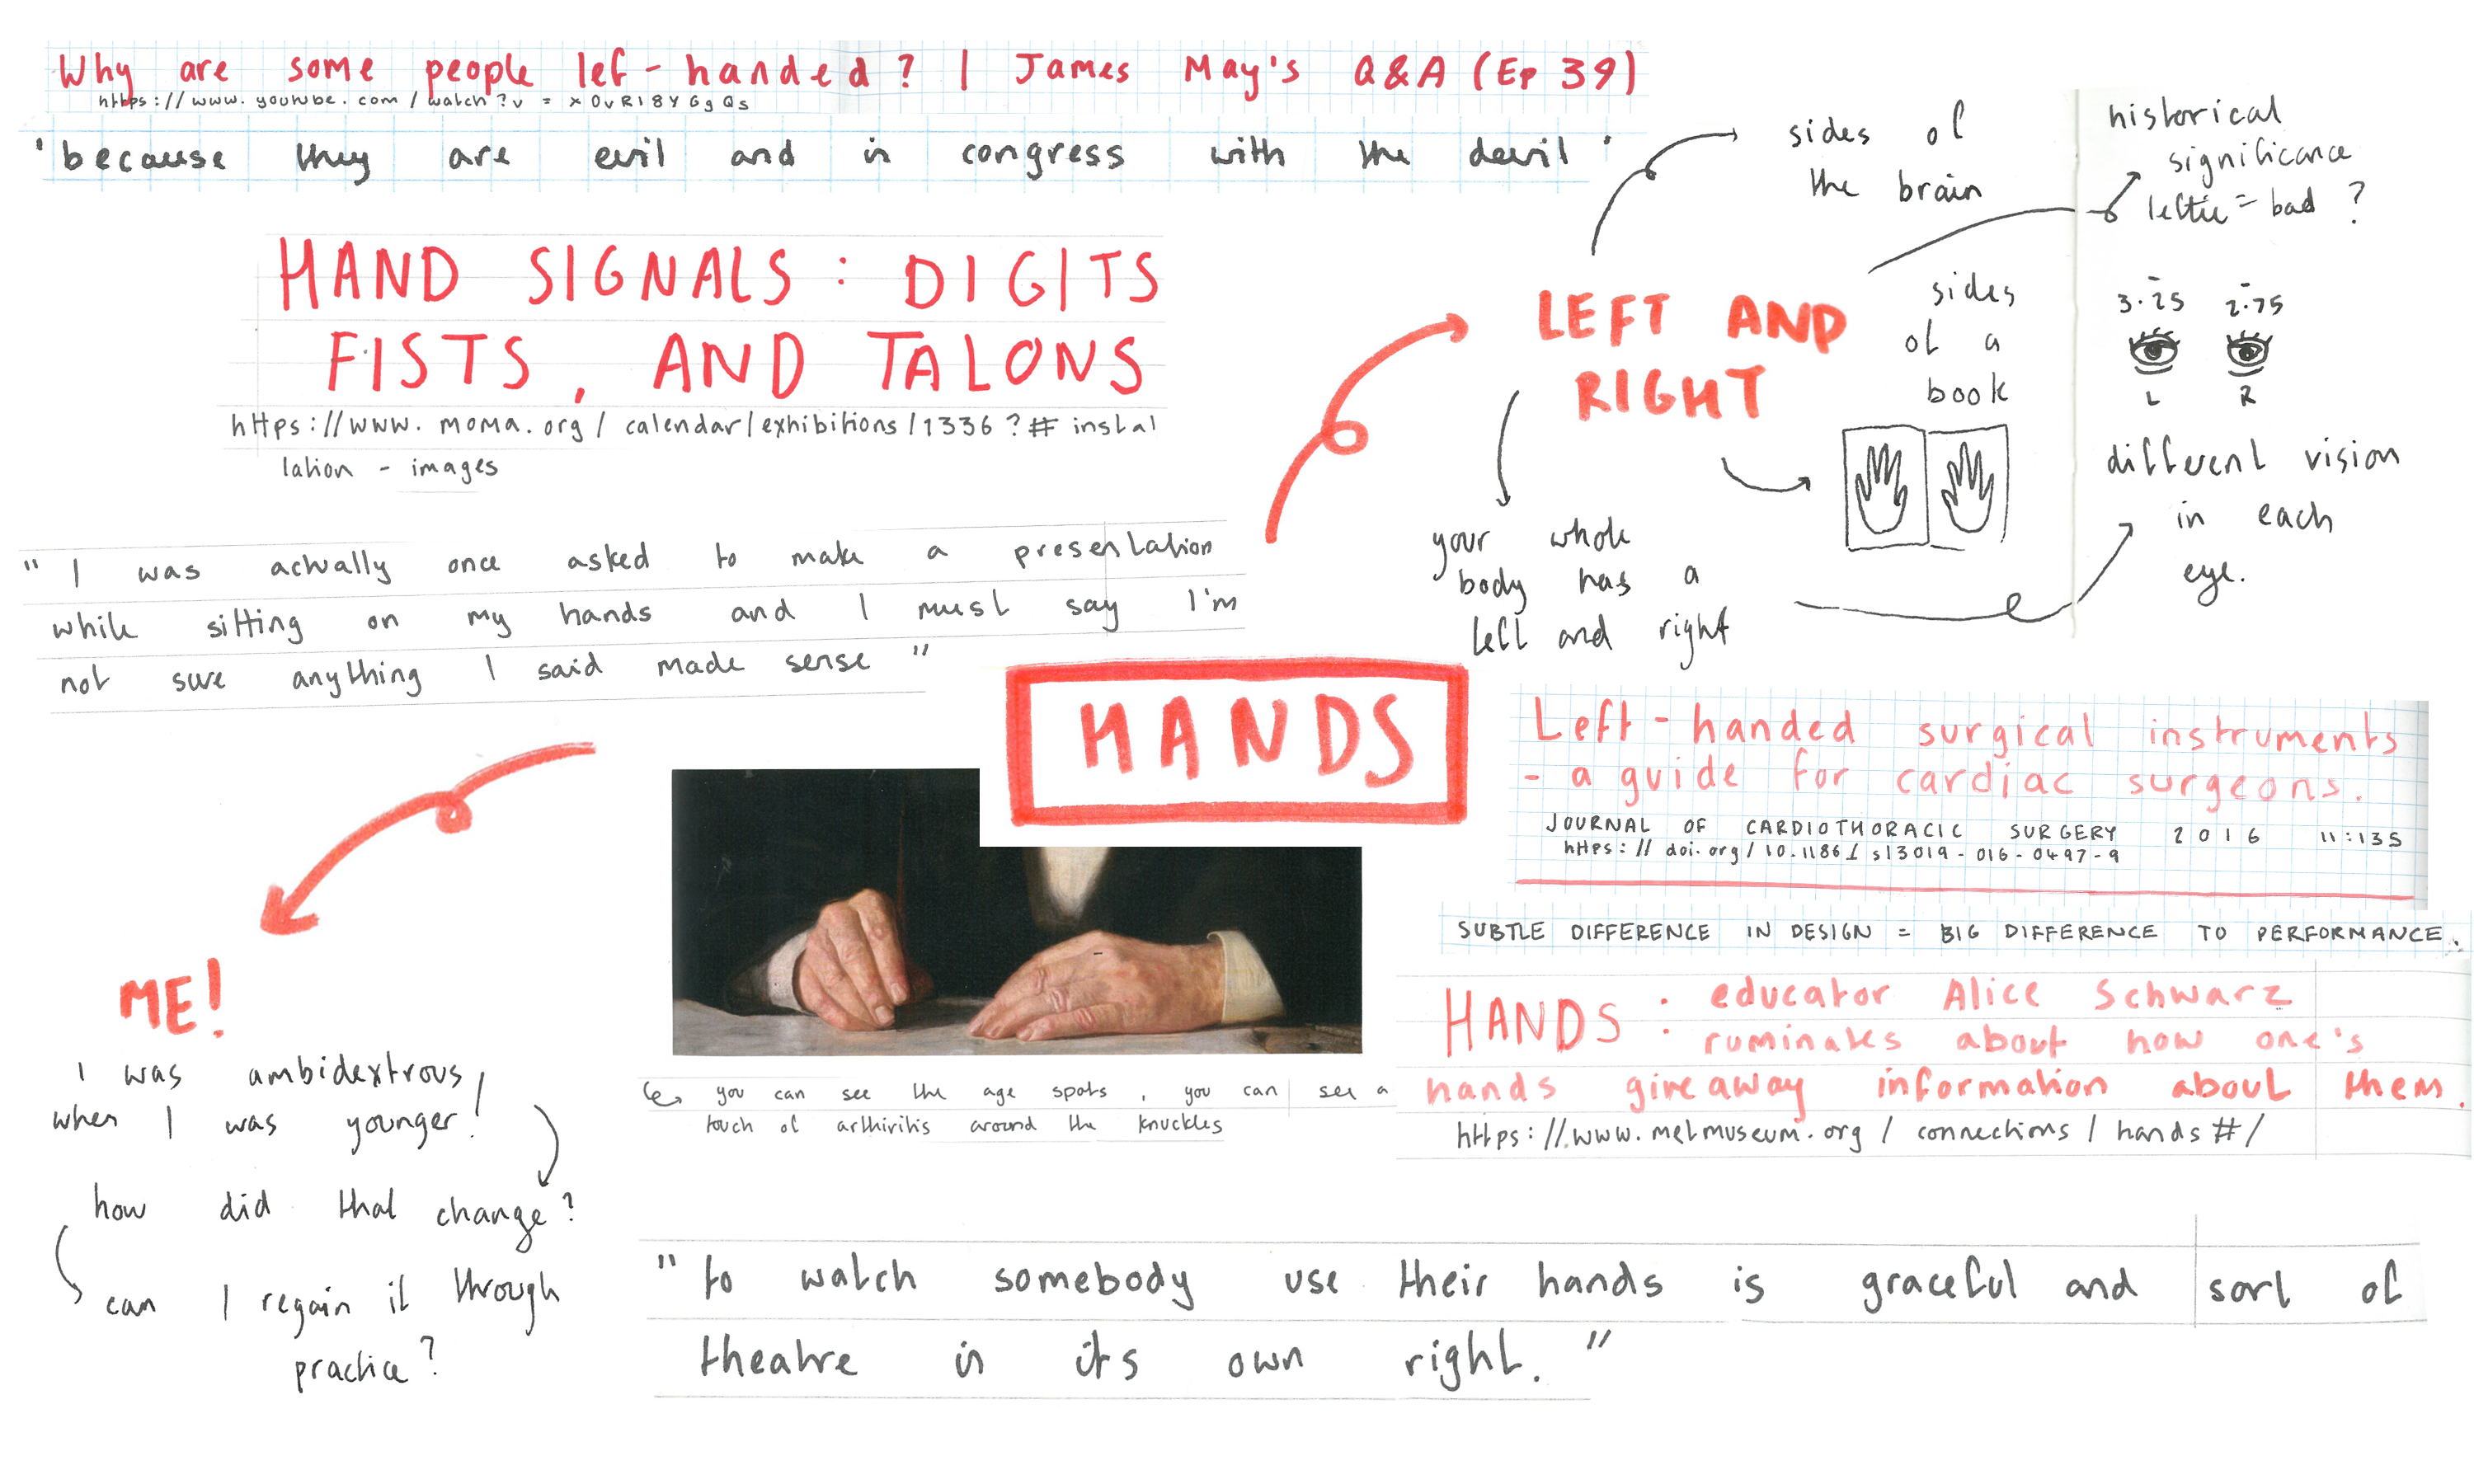 Why are some people lef-handed? | James May's Q&A (Ep 39)
https://www.youtube.com/watch?v=xOvRI8YGgQs
'because they are evil and in congress with the devil'
HAND SIGNALS: DIGITS
FISTS, AND TALONS
https://www.moma.org/calendar/exhibitions/1336?#instal
lation-images
"I was actually once asked to make a presentation
while sitting on my hands and I must say I'm
not sure anything I said made sense"
LEFT AND
RIGHT
sides of
the brain
historical
significance
leftie = bad?
sides
of a
book
-3.25 -2.75
L R
different vision
in each
eye.
your whole
body has a
left and right
HANDS
Left-handed surgical instruments
- a guide for cardiac surgeons.
JOURNAL OF CARDIOTHORACIC SURGERY 2016 11:135
https://doi.org/10.1186/s13019-016-0497-9
SUBTLE DIFFERENCE IN DESIGN = BIG DIFFERENCE TO PERFORMANCE.
HANDS: educator Alice Schwarz
ruminates about how one's
hands giveaway information about them.
https://www.metmuseum.org/connections/hands#/
you can see the age spots, you can see a
touch of arthiritis around the knuckles
ME!
I was ambidextrous
when I was younger!
how did that change?
can I regain it through
practice?
"to watch somebody use their hands is graceful and sort of
theatre in its own right."